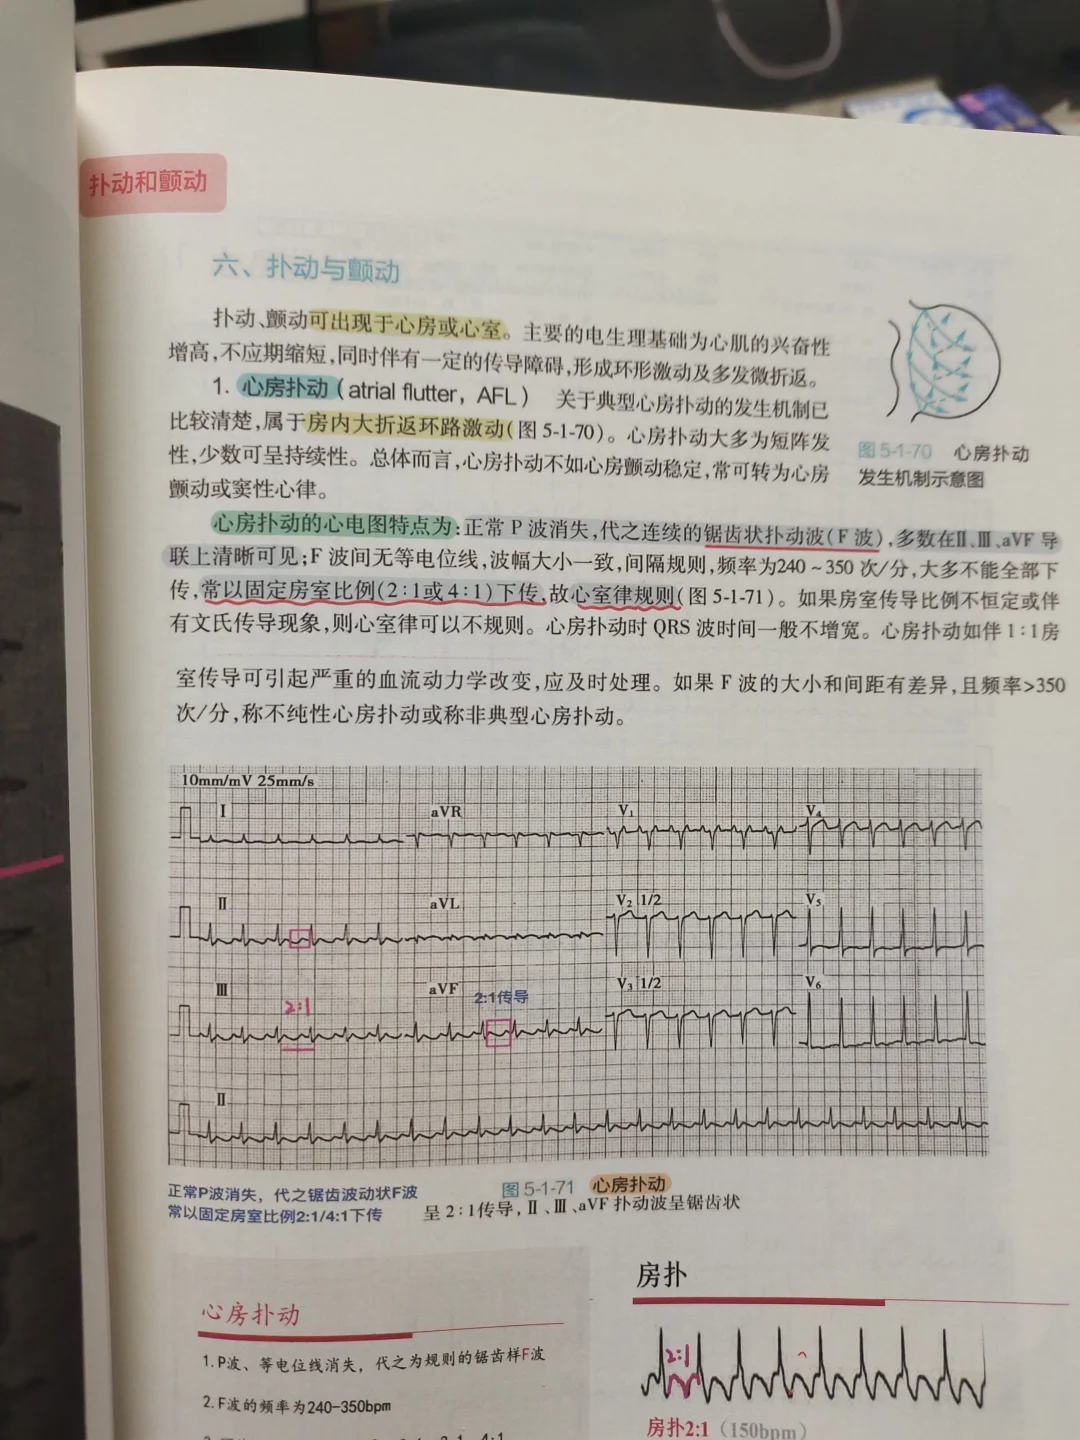 扑动和颤动
六、扑动与颤动
扑动、颤动可出现于心房或心室。主要的电生理基础为心肌的兴奋性
增高,不应期缩短,同时伴有一定的传导障碍,形成环形激动及多发微折返。
1. 心房扑动(atrial flutter, AFL) 关于典型心房扑动的发生机制已
比较清楚,属于房内大折返环路激动(图 5-1-70)。心房扑动大多为短阵发
性,少数可呈持续性。总体而言,心房扑动不如心房颤动稳定,常可转为心房
颤动或窦性心律。
图 5-1-70 心房扑动
发生机制示意图
心房扑动的心电图特点为:正常 P 波消失,代之连续的锯齿状扑动波(F 波),多数在Ⅱ、Ⅲ、aVF 导
联上清晰可见;F 波间无等电位线,波幅大小一致,间隔规则,频率为240~350 次/分,大多不能全部下
传,常以固定房室比例(2:1或 4:1)下传,故心室律规则(图 5-1-71)。如果房室传导比例不恒定或伴
有文氏传导现象,则心室律可以不规则。心房扑动时 QRS 波时间一般不增宽。心房扑动如伴 1:1房
室传导可引起严重的血流动力学改变,应及时处理。如果 F 波的大小和间距有差异,且频率>350
次/分,称不纯性心房扑动或称非典型心房扑动。
10mm/mV 25mm/s
Ⅰ aVR V₁ V₄
Ⅱ aVL V₂ 1/2 V₅
Ⅲ aVF V₃ 1/2 V₆
2:1 2:1传导
Ⅱ
正常P波消失，代之锯齿波动状F波
常以固定房室比例2:1/4:1下传
图 5-1-71 心房扑动
呈 2:1传导,Ⅱ、Ⅲ、aVF 扑动波呈锯齿状
心房扑动
1.P波、等电位线消失，代之为规则的锯齿样F波
2.F波的频率为240-350bpm
房扑
2:1
房扑2:1（150bpm）